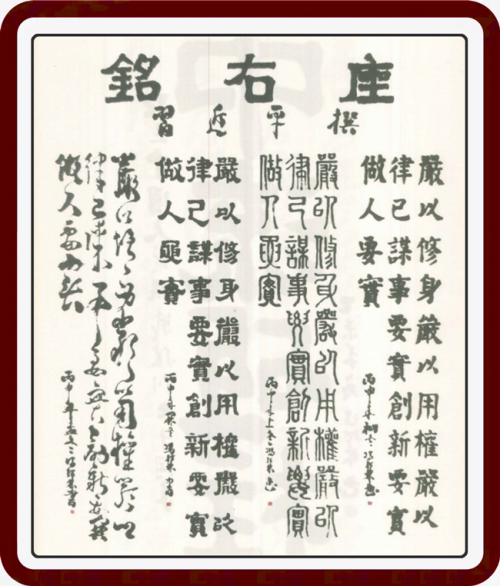 座右銘
習近平撰
嚴以修身嚴以用權嚴以
律己謀事要實創新要實
做人要實
丙申年
嚴以修身嚴以用權嚴以
律己謀事要實創新要實
做人要實
丙申年
嚴以修身嚴以用權嚴以
律己謀事要實創新要實
做人要實
丙申年
嚴以修身嚴以用權嚴以
律己謀事要實創新要實
做人要實
丙申年